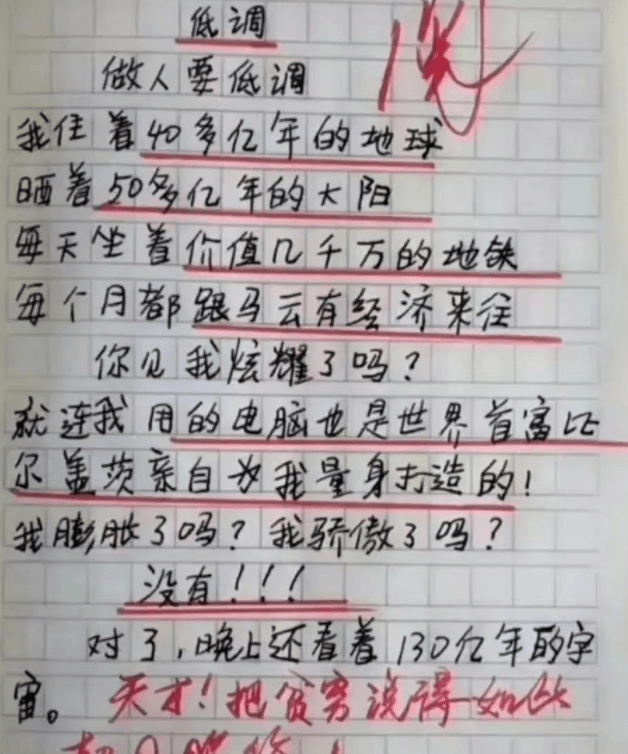 低调
优
做人要低调
我住着40多亿年的地球
晒着50多亿年的太阳
每天坐着价值几千万的地铁
每个月都跟马云有经济来往
你见我炫耀了吗？
就连我用的电脑也是世界首富比
尔盖茨亲自为我量身打造的！
我膨胀了吗？我骄傲了吗？
没有！！！
对了，晚上还看着130亿年的宇
宙。天才！把贫穷说得如此